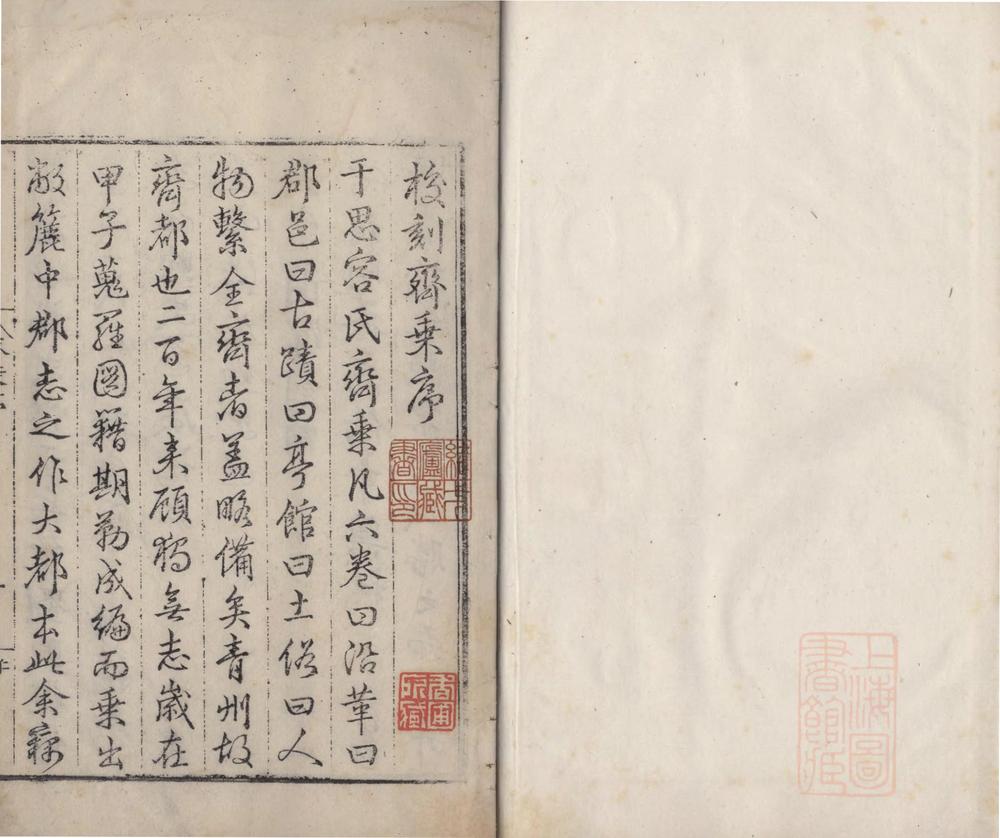 上海圖
書館藏
校刻齊乘序
于思容氏齊乘凡六卷曰沿革曰
郡邑曰古蹟曰亭館曰土俗曰人
物繫全齊者蓋略備矣青州故
齊都也二百年來顧獨無志歲在
甲子蒐羅圖籍期勒成編而乘出
敝簏中郡志之作大都本此余竊